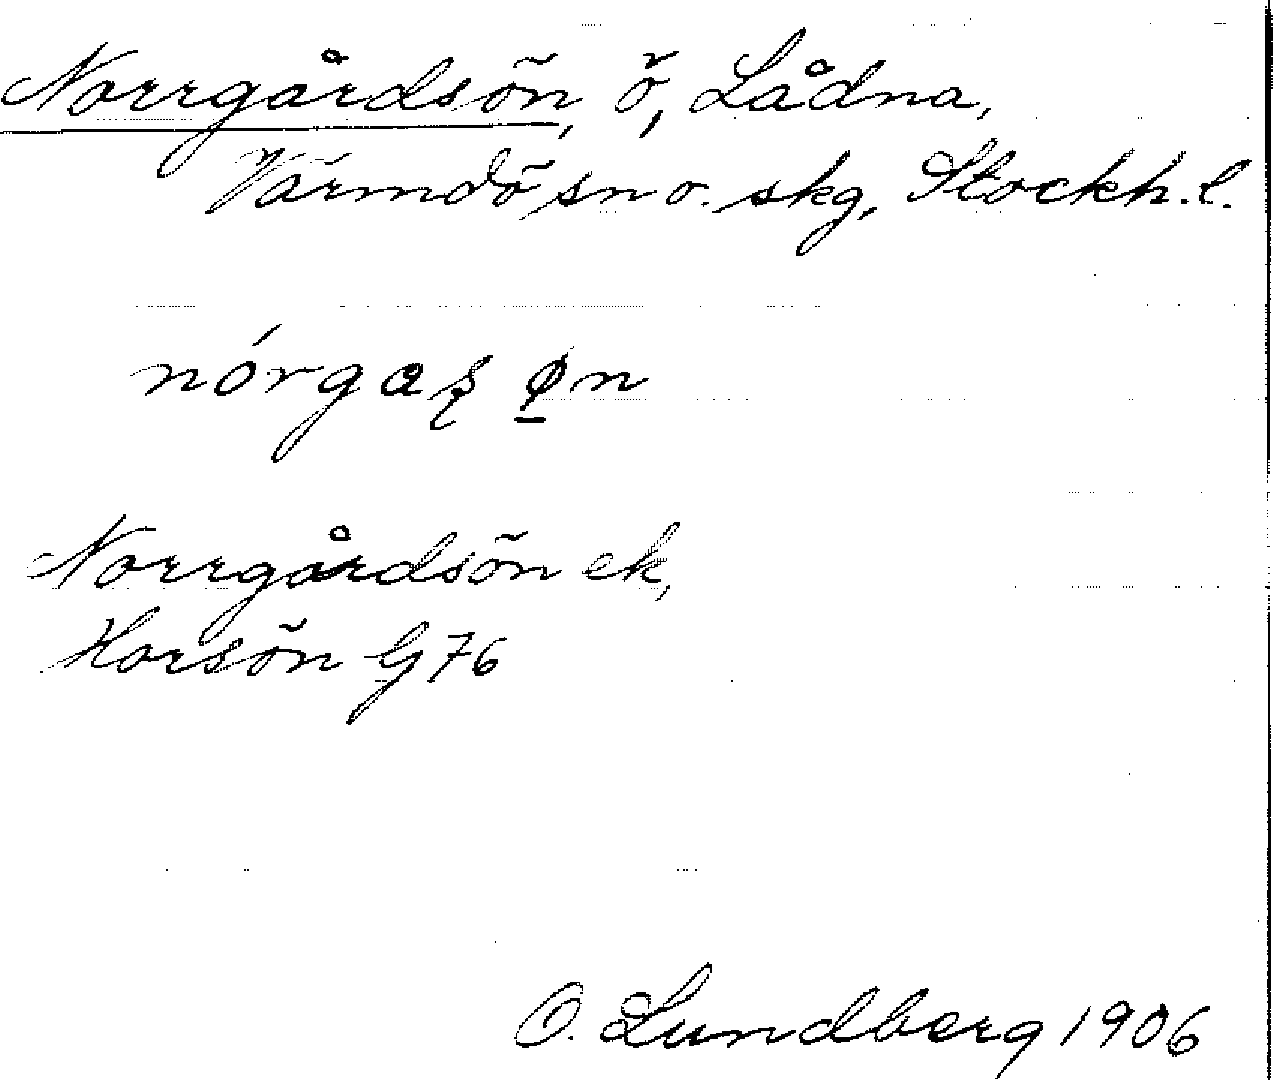 Norrgårdsön, ö, Lådna,
Värmdö sn o. skg, Stockh. l.
nórgaʂ øn
Norrgårdsön ek,
Korsön G 76
O. Lundberg 1906